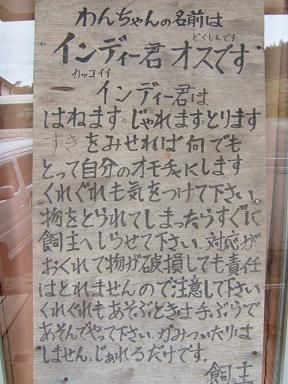 わんちゃんの名前は
どくしんです
インディー君 オスです
カッコイイ
一 インディー君は
はねます。じゃれます。とります
すきをみせれば何でも
とって自分のオモチャにします
くれぐれも気をつけて下さい。
物をとられてしまったらすぐに
飼主へしらせて下さい。対応が
おくれて物が破損しても責任
はとれませんので注意して下さい
くれぐれもあそぶときは手ぶらで
あそんでやって下さい。かみついたりは
しません。じゃれるだけです。
飼主